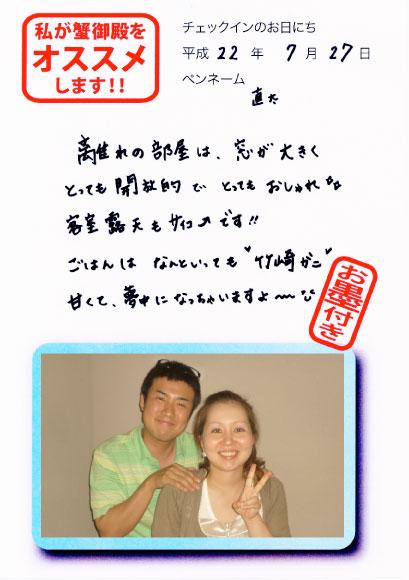 私が蟹御殿を
オススメ
します!!
チェックインのお日にち
平成 22 年 7 月 27 日
ペンネーム
直太
離れの部屋は、窓が大きく
とっても開放的で とっても おしゃれな
客室露天も サイコーです!!
ごはんは なんといっても "竹崎がに"
甘くて、夢中に なっちゃいますよ〜
お墨付き